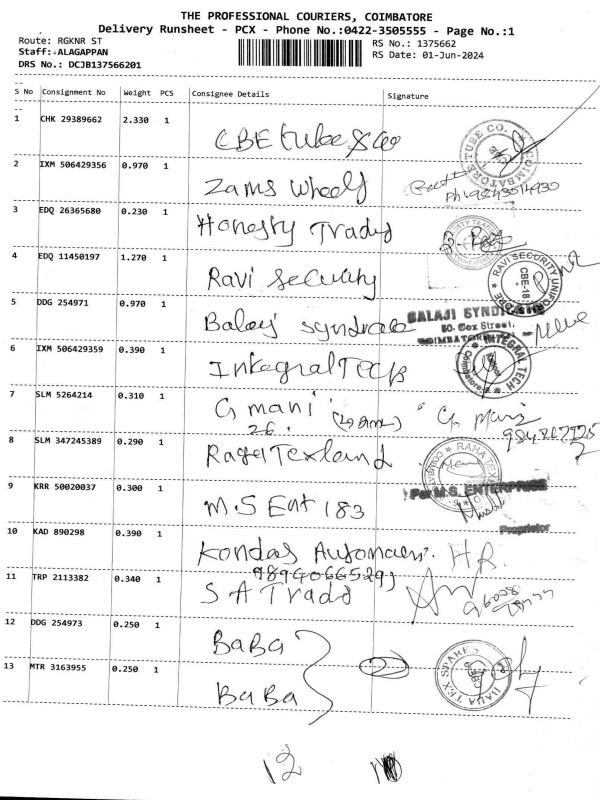 THE PROFESSIONAL COURIERS, COIMBATORE
Delivery Runsheet - PCX - Phone No.:0422-3505555 - Page No.:1
Route: RGKNR ST RS No.: 1375662
Staff: ALAGAPPAN RS Date: 01-Jun-2024
DRS No.: DCJB137566201
S No Consignment No Weight PCS Consignee Details Signature
1 CHK 29389662 2.330 1 CBE tube & Co
COIMBATORE TUBE CO.
2 IXM 506429356 0.970 1 Zams Wheel
3 EDQ 26365680 0.230 1 Honesty Trades
4 EDQ 11450197 1.270 1 Ravi Security
RAVI SECURITY UNIFORMS
CBE-18
5 DDG 254971 0.970 1 Balaji Syndicate
BALAJI SYNDICATE
50. Cox Street,
6 IXM 506429359 0.390 1 Integral Tech
INTEGRAL TECH
7 SLM 5264214 0.310 1 G mani G. Mani
26.
8 SLM 347245389 0.290 1
9 KRR 50020037 0.300 1 M.S Ent 183
For M.S. ENTERPRISE
Proprietor
10 KAD 890298 0.390 1 Kondas H R.
11 TRP 2113382 0.340 1 S A Trade
12 DDG 254973 0.250 1 BaBa
13 MTR 3163955 0.250 1 BaBa
BABA TEX SPARES
12